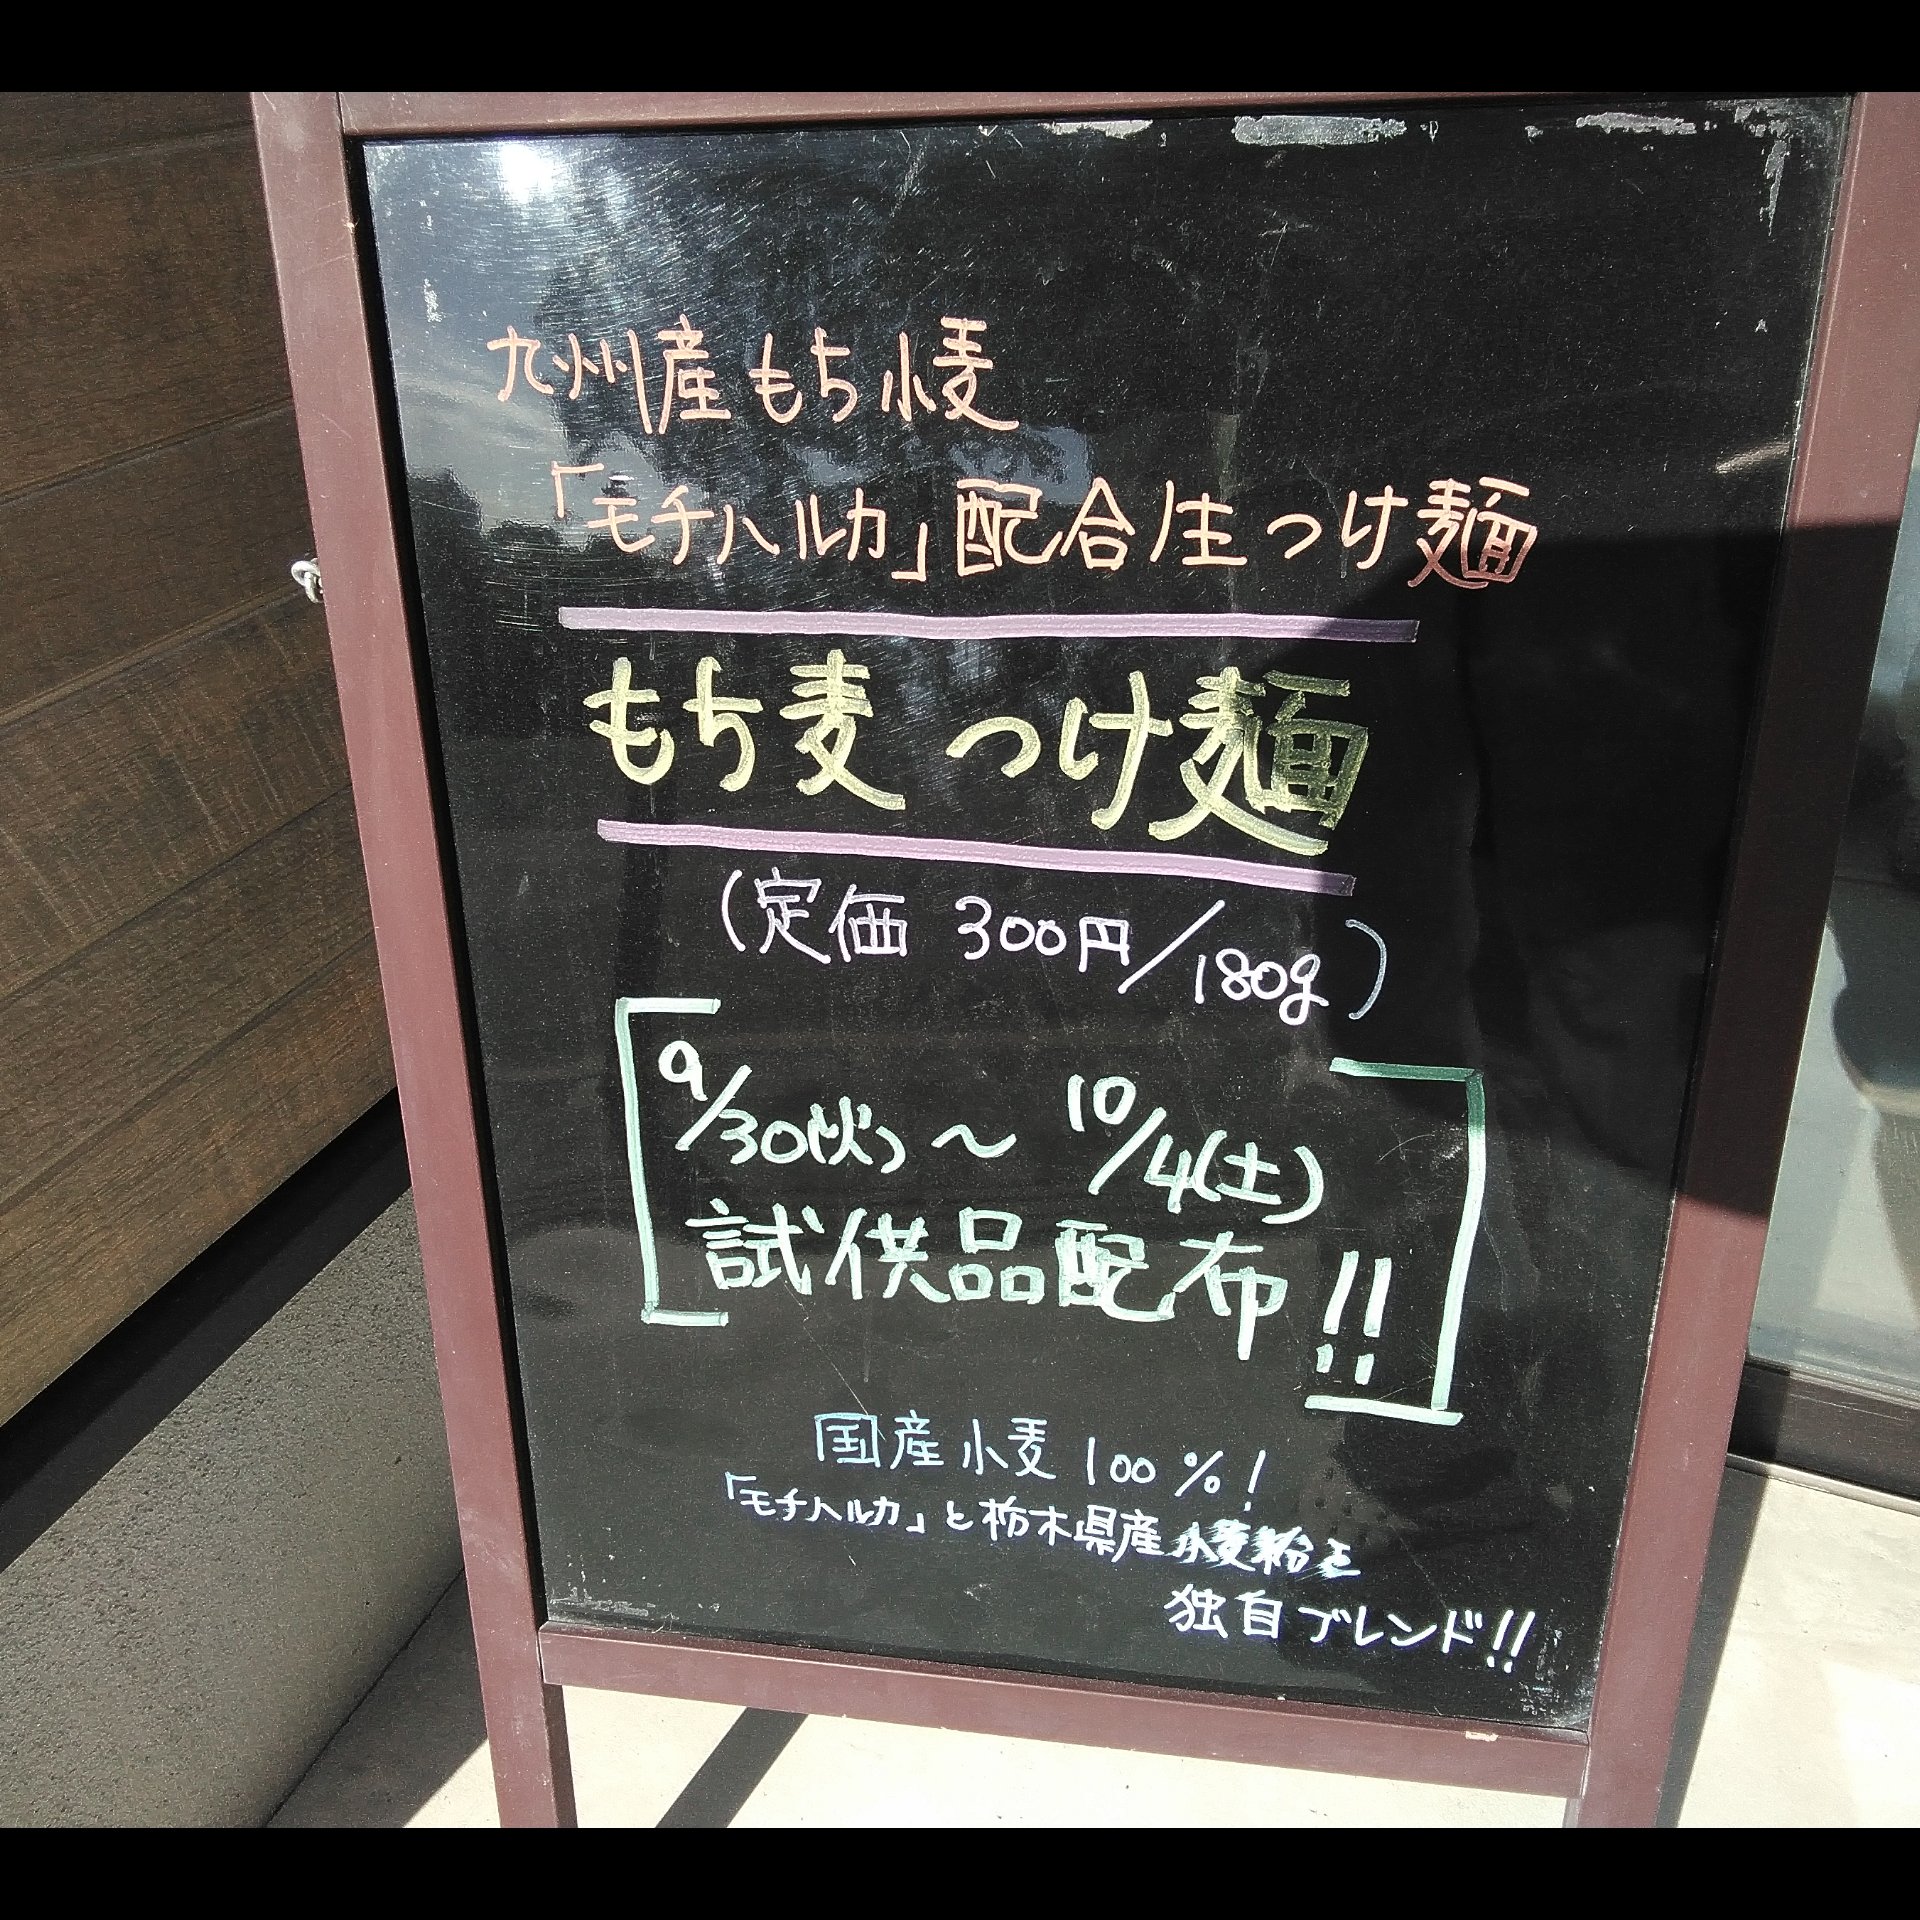 九州産もち小麦
「モチハルカ」配合生つけ麺
もち麦 つけ麺
(定価 300円/180g)
9/30(火)～10/4(土)
試供品配布!!
国産小麦100%!
「モチハルカ」と栃木県産小麦粉を
独自ブレンド!!